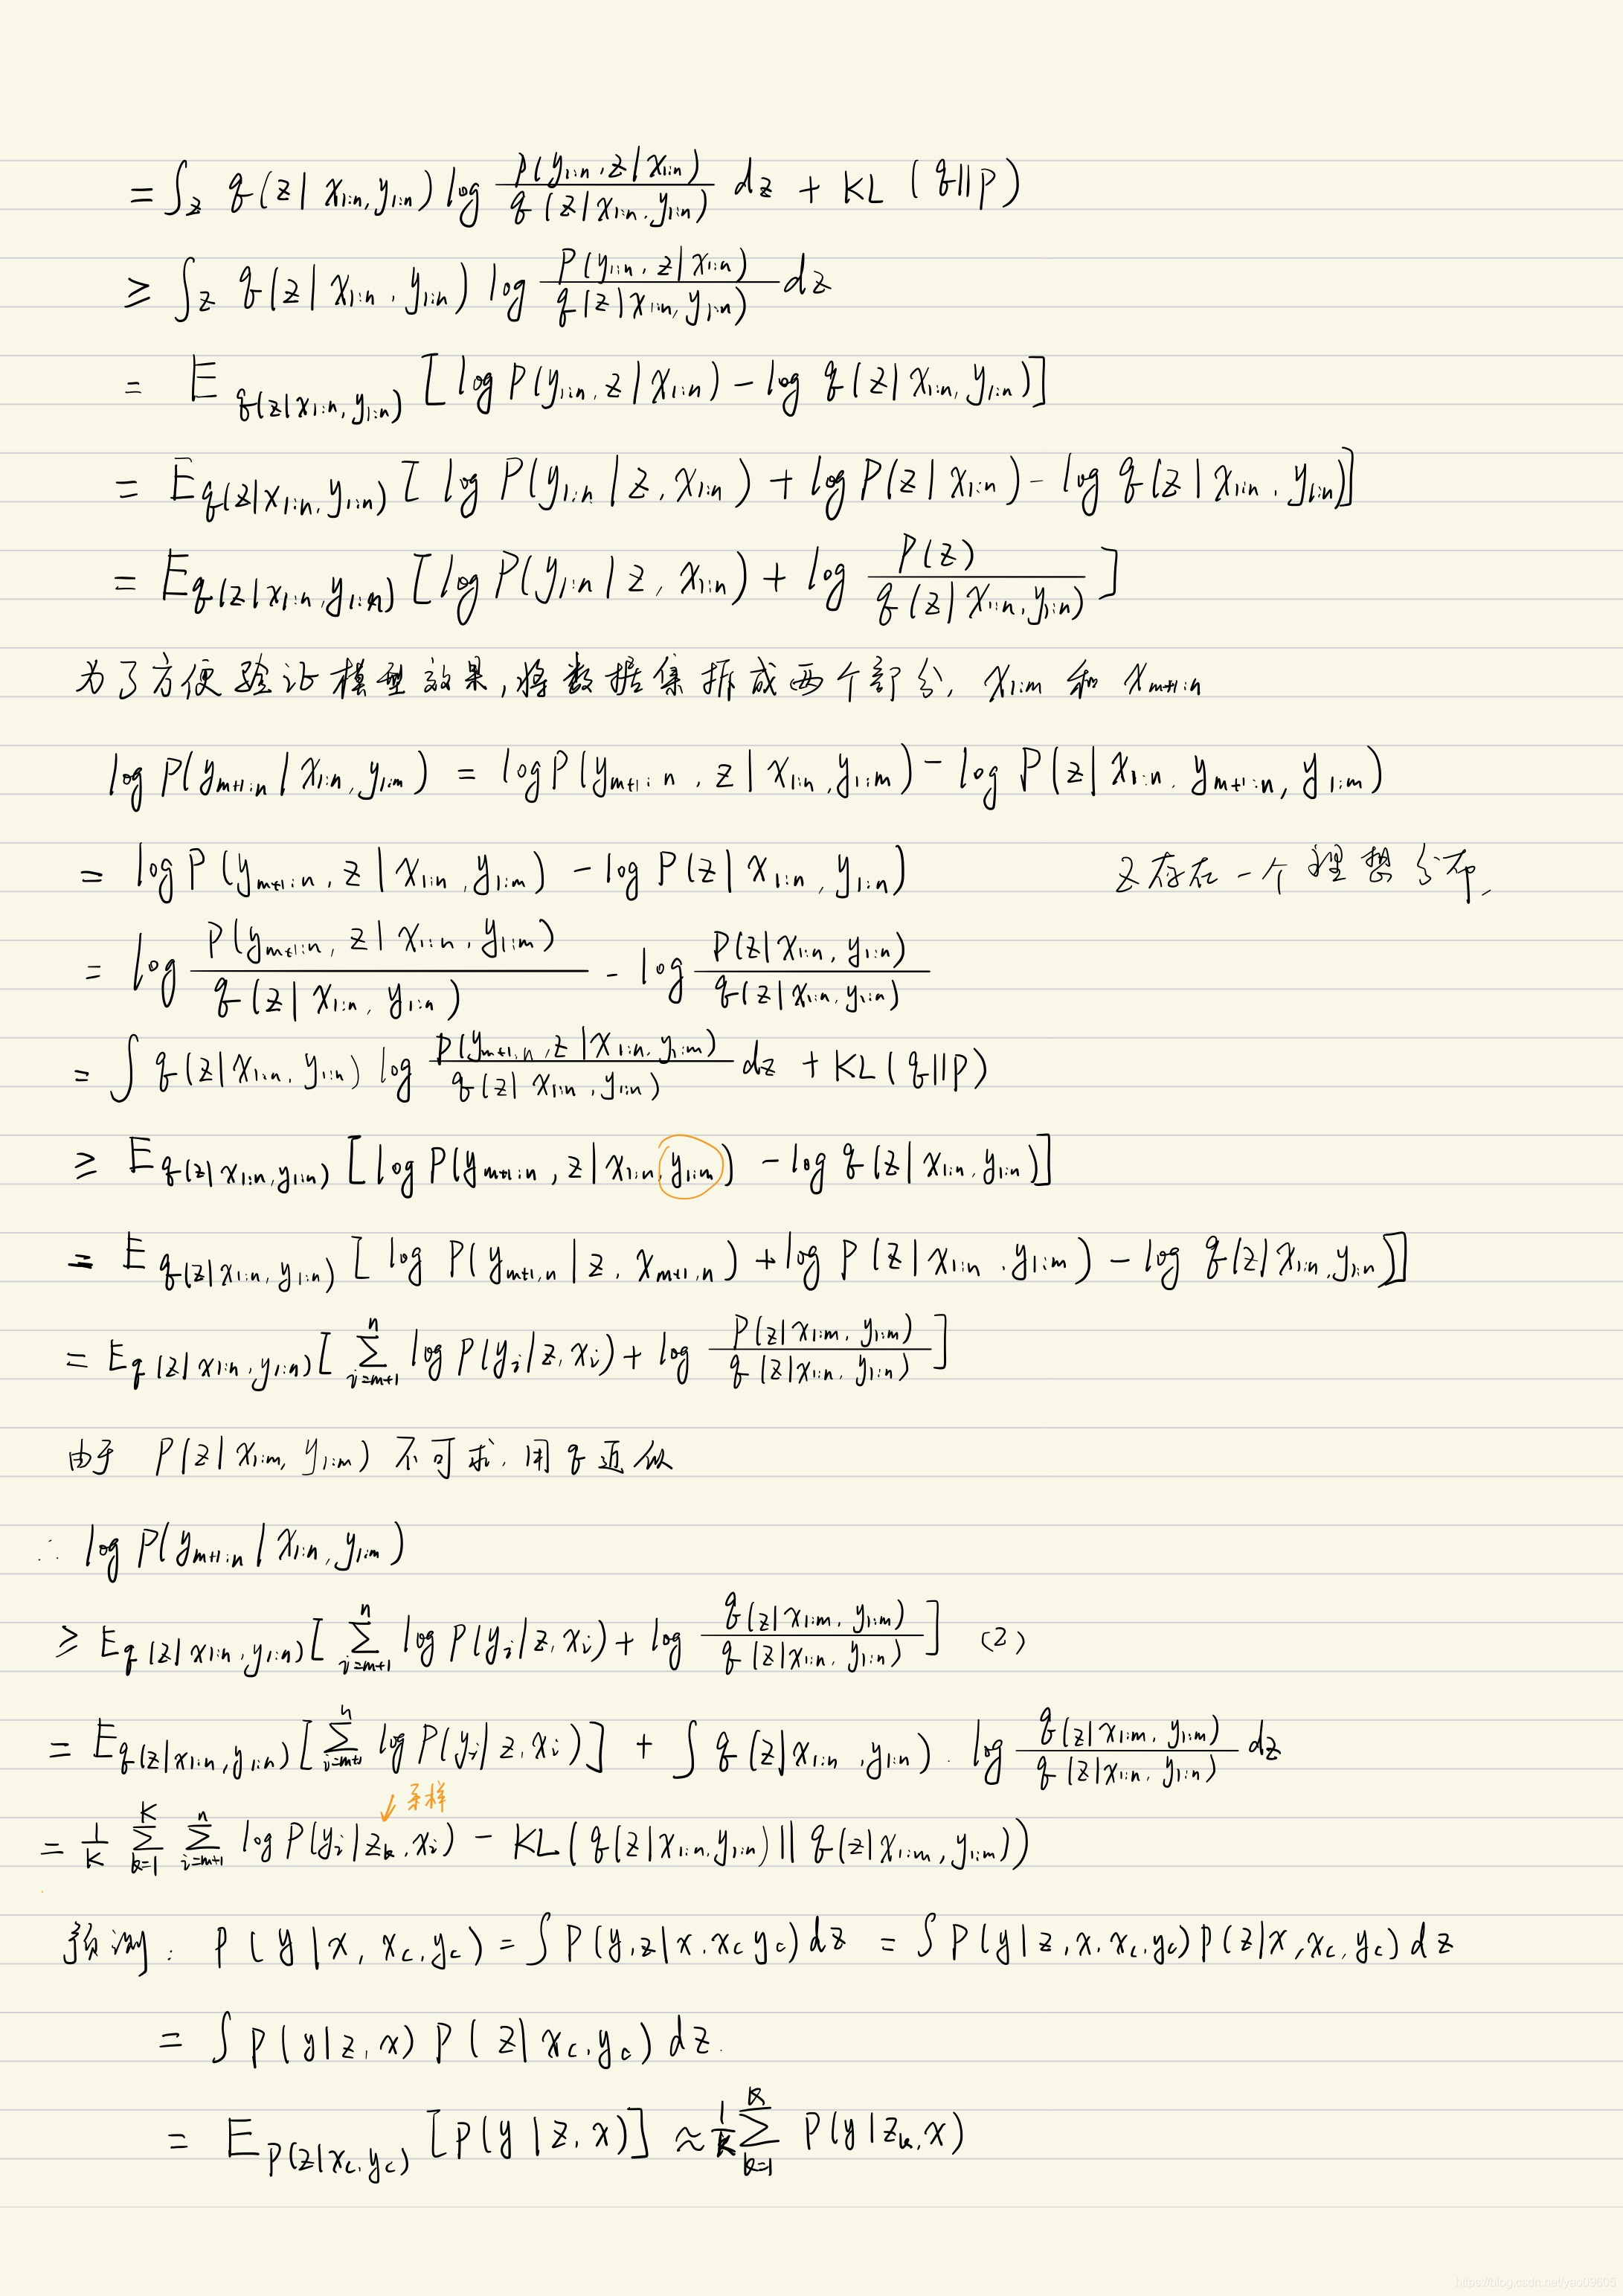 = ∫_z q(z|x_{1:n}, y_{1:n}) log \frac{p(y_{1:n}, z|x_{1:n})}{q(z|x_{1:n}, y_{1:n})} dz + KL(q||p)
≥ ∫_z q(z|x_{1:n}, y_{1:n}) log \frac{p(y_{1:n}, z|x_{1:n})}{q(z|x_{1:n}, y_{1:n})} dz
= E_{q(z|x_{1:n}, y_{1:n})} [log P(y_{1:n}, z|x_{1:n}) - log q(z|x_{1:n}, y_{1:n})]
= E_{q(z|x_{1:n}, y_{1:n})} [log P(y_{1:n}|z, x_{1:n}) + log P(z|x_{1:n}) - log q(z|x_{1:n}, y_{1:n})]
= E_{q(z|x_{1:n}, y_{1:n})} [log P(y_{1:n}|z, x_{1:n}) + log \frac{P(z)}{q(z|x_{1:n}, y_{1:n})}]
为了方便验证模型效果,将数据集拆成两个部分, x_{1:m} 和 x_{m+1:n}
log P(y_{m+1:n}|x_{1:n}, y_{1:m}) = log P(y_{m+1:n}, z|x_{1:n}, y_{1:m}) - log P(z|x_{1:n}, y_{m+1:n}, y_{1:m})
= log P(y_{m+1:n}, z|x_{1:n}, y_{1:m}) - log P(z|x_{1:n}, y_{1:n}) z存在一个理想分布,
= log \frac{P(y_{m+1:n}, z|x_{1:n}, y_{1:m})}{q(z|x_{1:n}, y_{1:n})} - log \frac{P(z|x_{1:n}, y_{1:n})}{q(z|x_{1:n}, y_{1:n})}
= ∫ q(z|x_{1:n}, y_{1:n}) log \frac{p(y_{m+1:n}, z|x_{1:n}, y_{1:m})}{q(z|x_{1:n}, y_{1:n})} dz + KL(q||p)
≥ E_{q(z|x_{1:n}, y_{1:n})} [log P(y_{m+1:n}, z|x_{1:n}, y_{1:m}) - log q(z|x_{1:n}, y_{1:n})]
= E_{q(z|x_{1:n}, y_{1:n})} [log P(y_{m+1:n}|z, x_{m+1:n}) + log P(z|x_{1:n}, y_{1:m}) - log q(z|x_{1:n}, y_{1:n})]
= E_{q(z|x_{1:n}, y_{1:n})} [\sum_{i=m+1}^{n} log P(y_i|z, x_i) + log \frac{P(z|x_{1:m}, y_{1:m})}{q(z|x_{1:n}, y_{1:n})}]
由于 P(z|x_{1:m}, y_{1:m}) 不可求, 用 q 近似
∴ log P(y_{m+1:n}|x_{1:n}, y_{1:m})
≥ E_{q(z|x_{1:n}, y_{1:n})} [\sum_{i=m+1}^{n} log P(y_i|z, x_i) + log \frac{q(z|x_{1:m}, y_{1:m})}{q(z|x_{1:n}, y_{1:n})}] (2)
= E_{q(z|x_{1:n}, y_{1:n})} [\sum_{i=m+1}^{n} log P(y_i|z, x_i)] + ∫ q(z|x_{1:n}, y_{1:n}) · log \frac{q(z|x_{1:m}, y_{1:m})}{q(z|x_{1:n}, y_{1:n})} dz
↙ 采样
= \frac{1}{K} \sum_{k=1}^{K} \sum_{i=m+1}^{n} log P(y_i|z_k, x_i) - KL(q(z|x_{1:n}, y_{1:n}) || q(z|x_{1:m}, y_{1:m}))
预测: P(y|x, x_c, y_c) = ∫ P(y, z|x, x_c y_c) dz = ∫ P(y|z, x, x_c, y_c) P(z|x, x_c, y_c) dz
= ∫ P(y|z, x) P(z|x_c, y_c) dz.
= E_{P(z|x_c, y_c)} [P(y|z, x)] ≈ \frac{1}{K} \sum_{k=1}^{K} P(y|z_k, x)
https://blog.csdn.net/yao09605